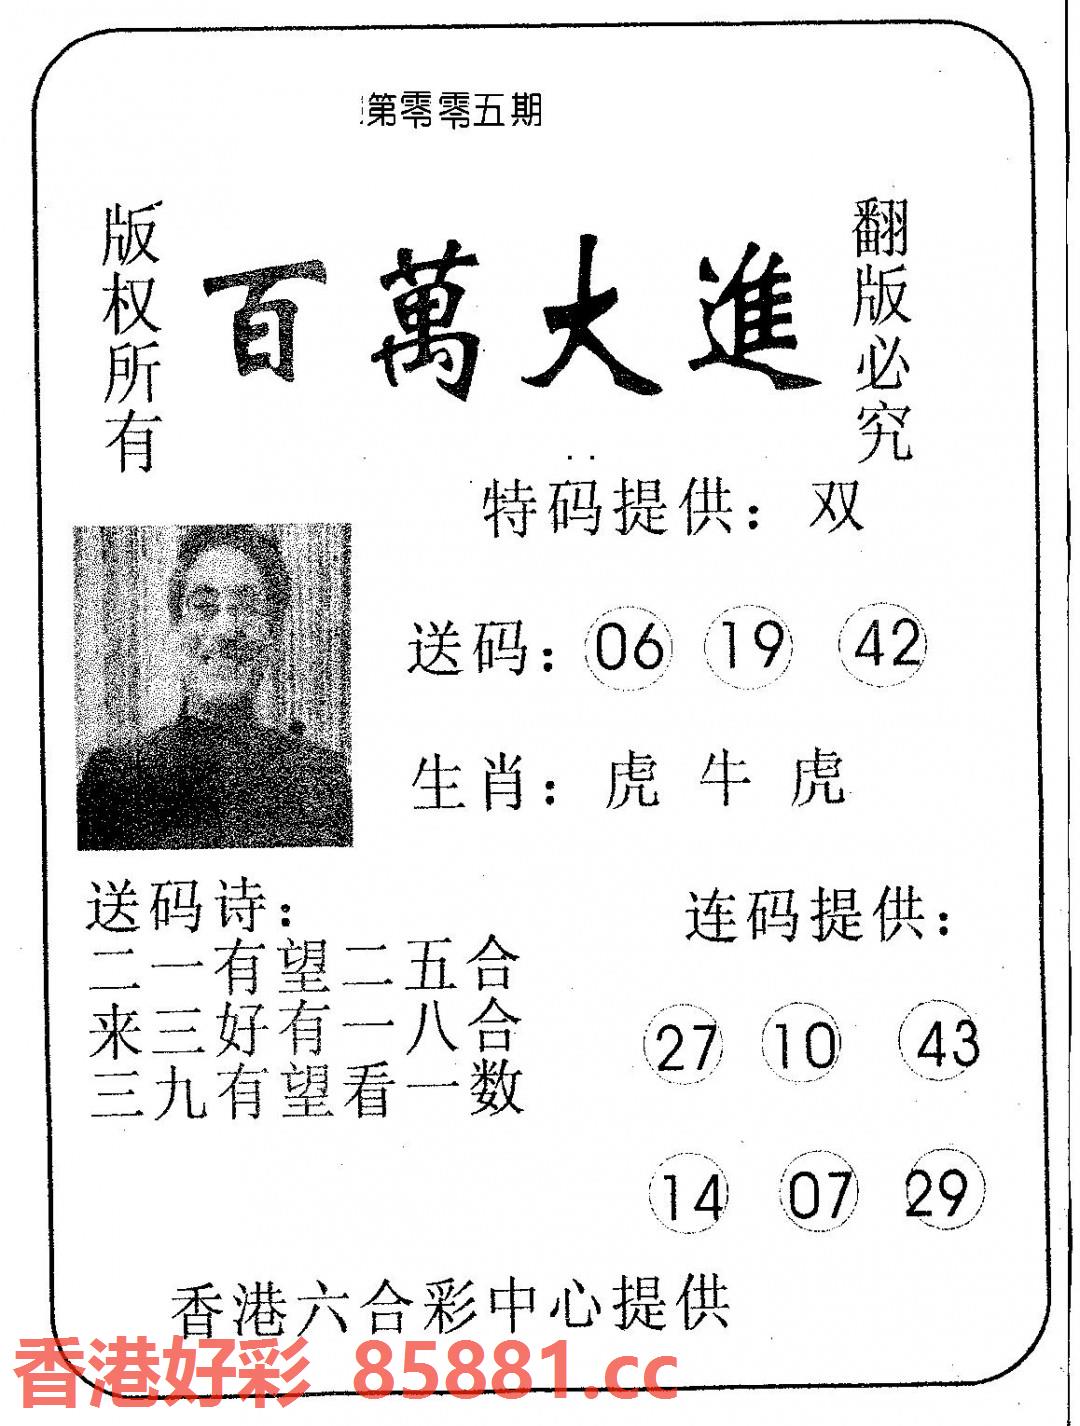 第零零五期
版权所有
百萬大進
翻版必究
特码提供：双
送码：06 19 42
生肖：虎 牛 虎
送码诗：
二一有望二五合
来三好有一八合
三九有望看一数
连码提供：
27 10 43
14 07 29
香港六合彩中心提供
香港好彩 85881.cc